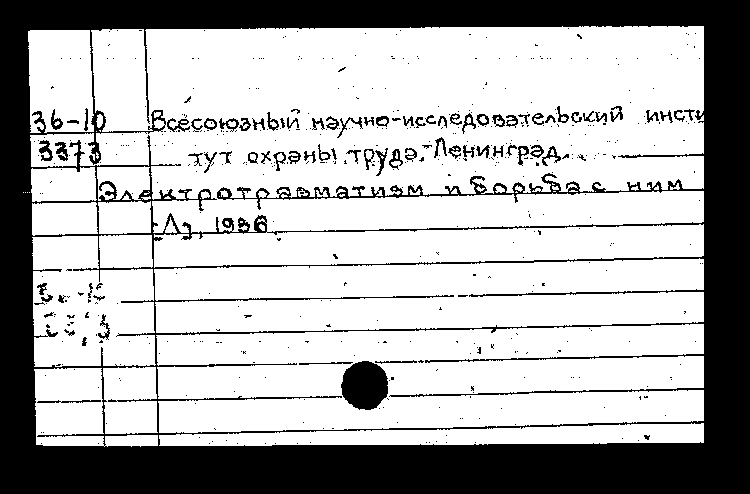 36-10 Всесоюзный научно-исследовательский инсти
3373 тут охраны труда. Ленинград.
Электротравматизм и борьба с ним
[Л], 1936.